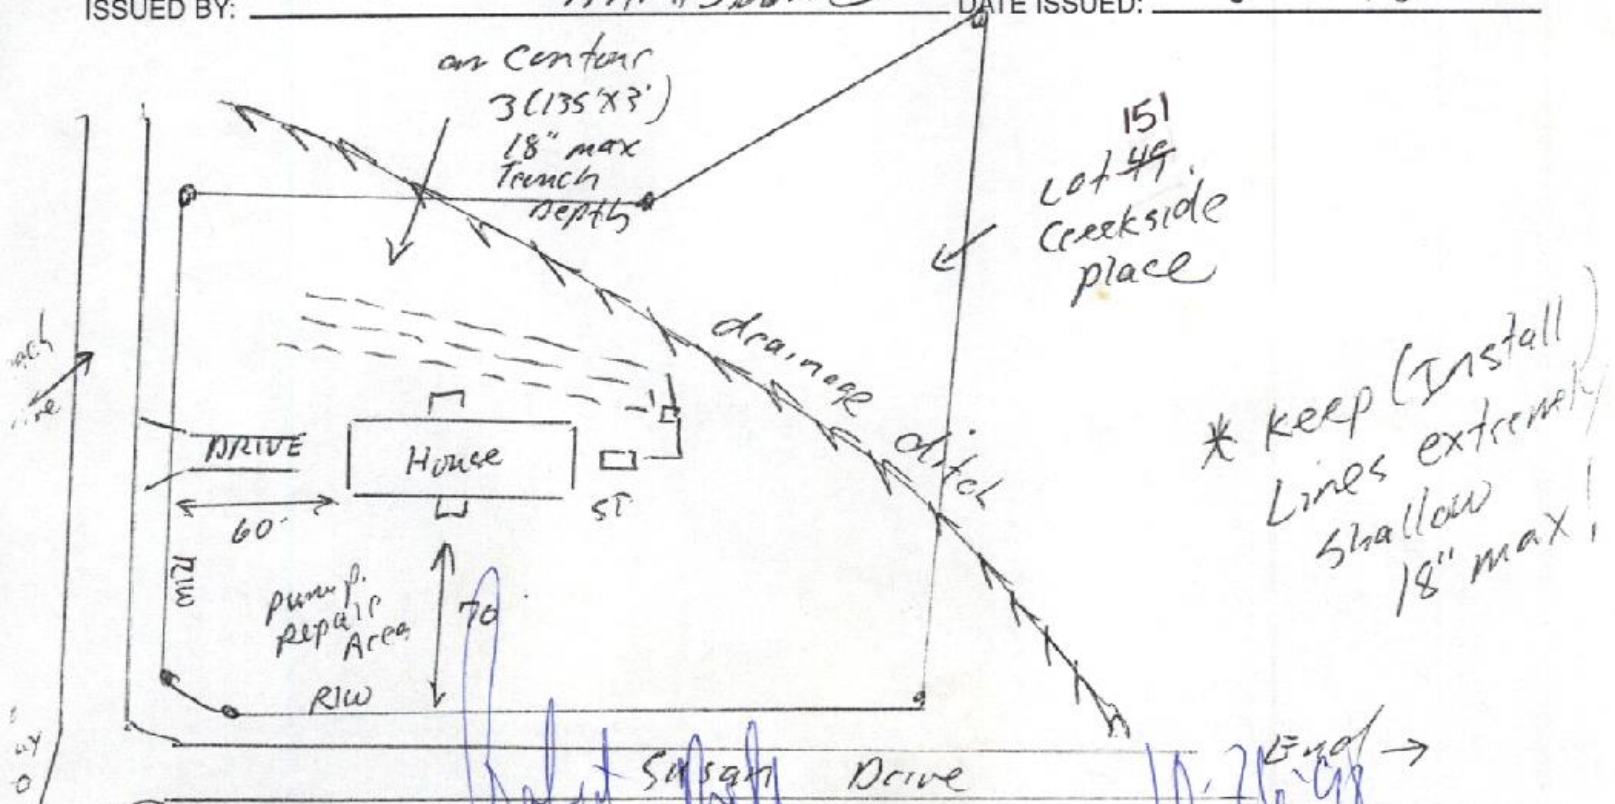 ISSUED BY:
DATE ISSUED:
on Contour
3(135'X3')
18" max
Trench
Depth
151
Lot 49.
Creekside
place
drainage ditch
* Keep (Install)
Lines extremely
Shallow
18" max!
DRIVE
House
ST
60'
R/W
pump.
Repair
Area
70
R/W
Susan Drive
End
10-26-98